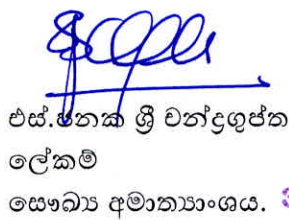 එස්.ජනක ශ්‍රී චන්ද්‍රගුප්ත
ලේකම්
සෞඛ්‍ය අමාත්‍යාංශය.